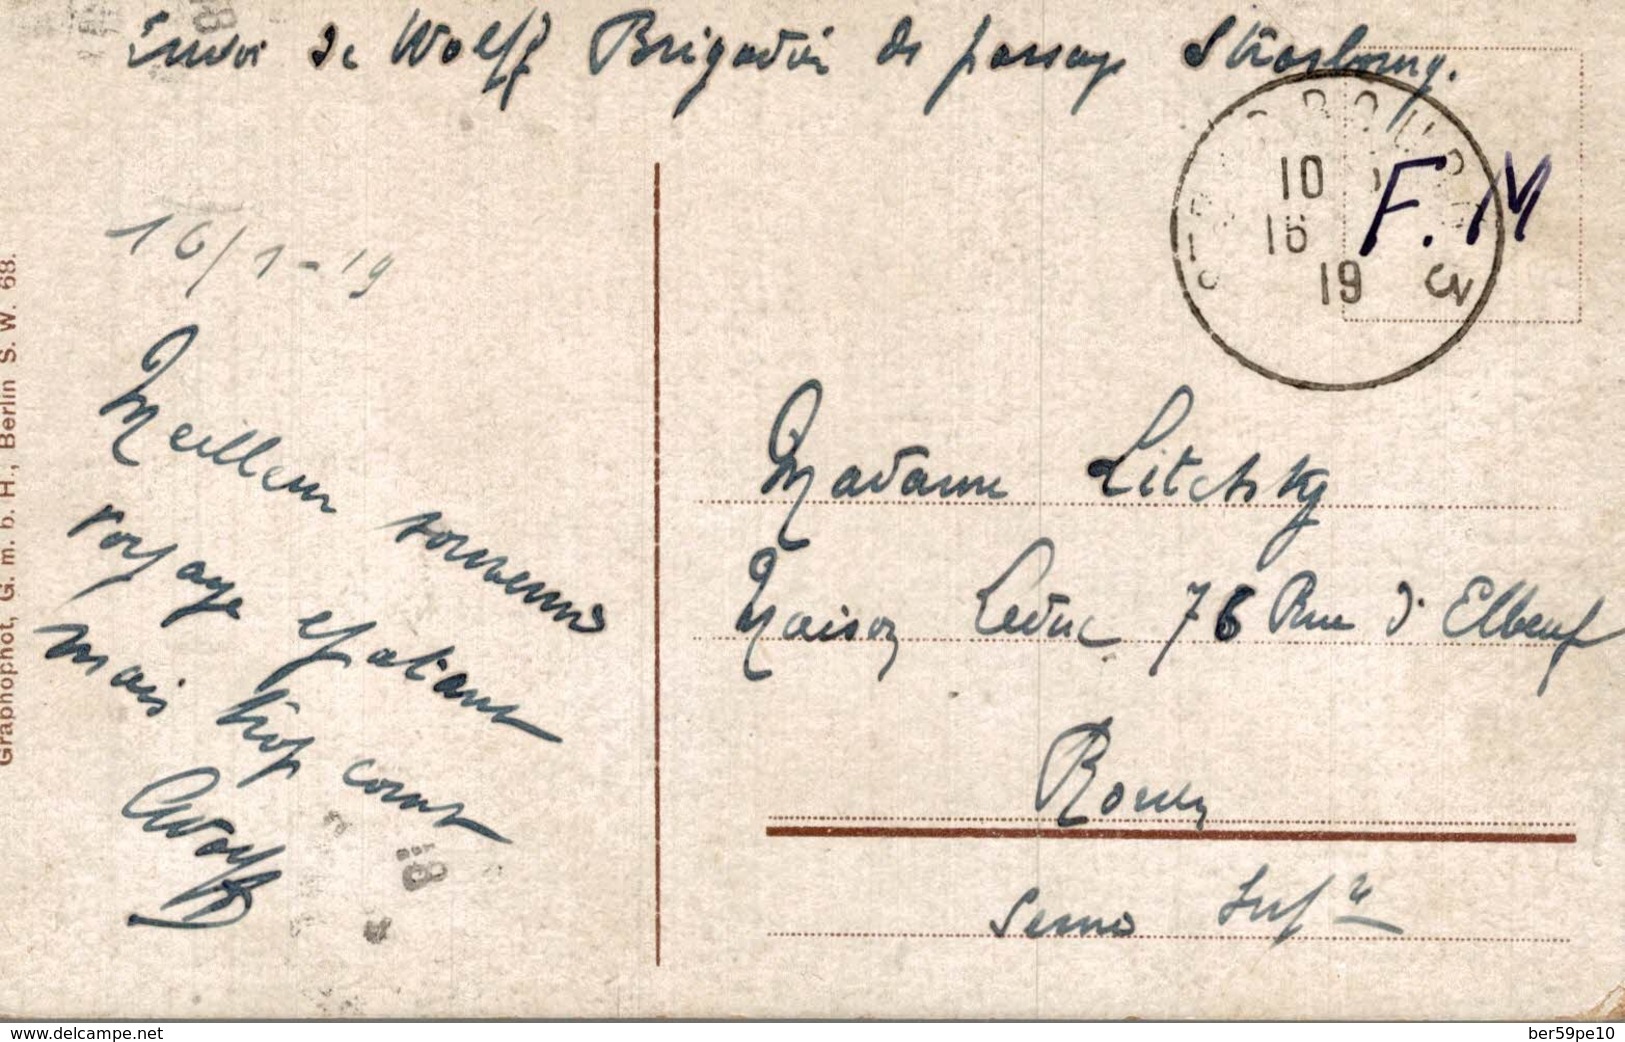 Envoi de Wolff Brigadier de passage Strasbourg.
STRASBOURG
10
16
19
3
F.M
16/1-19
Meilleurs souvenirs
voyage épatant
mais trop court
AWolff
Madame Litchsky
Maison Leduc 76 Rue d'Elbeuf
Rouen
Seine Infre
Graphophot, G. m. b. H., Berlin S. W. 68.
18
www.delcampe.net
ber59pe10